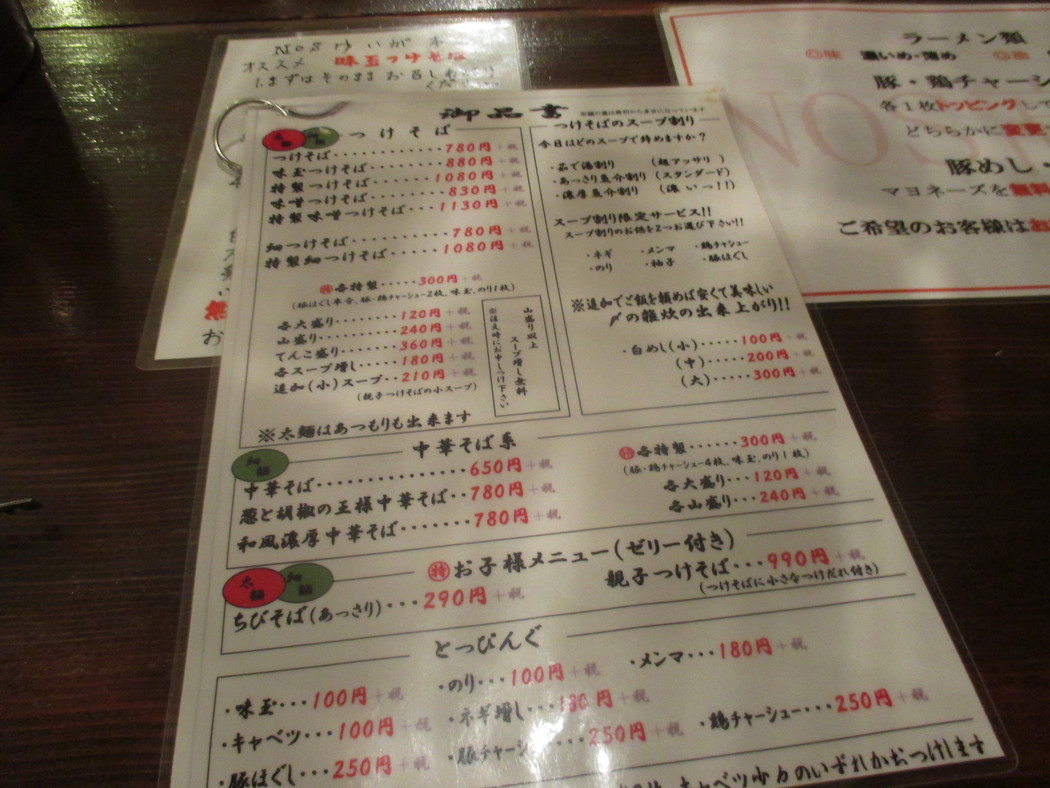 No8
オススメ 味玉つけそば
ラーメン類
濃いめ・薄め
豚・鶏チャーシ
各1枚トッピングして
どちらかに変更
豚めし・
マヨネーズを無料
ご希望のお客様はお
御品書
つけそば
つけそば 780円+税
味玉つけそば 880円+税
特製つけそば 1080円+税
味噌つけそば 830円+税
特製味噌つけそば 1130円+税
細つけそば 780円+税
特製細つけそば 1080円+税
特 各特製 300円+税
(豚ほぐし半合、豚・鶏チャーシュー2枚、味玉、のり1枚)
各大盛り 120円+税
山盛り 240円+税
てんこ盛り 360円+税
各スープ増し 180円+税
追加(小)スープ 210円+税
(親子つけそばの小スープ)
山盛り以上
スープ増し無料
※注文時にお申しつけ下さい
※太麺はあつもりも出来ます
つけそばのスープ割り
今日はどのスープで締めますか?
・茹で湯割り (超アッサリ)
・あっさり魚介割り (スタンダード)
・濃厚魚介割り (濃いっ!!)
スープ割り限定サービス!!
スープ割りのお供を2つお選び下さい!!
・ネギ ・メンマ ・鶏チャシュー
・のり ・柚子 ・豚ほぐし
※追加でご飯を頼めば安くて美味しい
〆の雑炊の出来上がり!!
・白めし(小) 100円+税
(中) 200円+税
(大) 300円+税
細麺
中華そば系
中華そば 650円+税
葱と胡椒の王様中華そば 780円+税
和風濃厚中華そば 780円+税
特 各特製 300円+税
(豚・鶏チャーシュー4枚、味玉、のり1枚)
各大盛り 120円+税
各山盛り 240円+税
太麺 細麺
特 お子様メニュー(ゼリー付き)
ちびそば(あっさり) 290円+税
親子つけそば 990円+税
(つけそばに小さなつけだれ付き)
とっぴんぐ
・味玉 100円+税
・のり 100円+税
・メンマ 180円+税
・キャベツ 100円+税
・ネギ増し 180円+税
・鶏チャーシュー 250円+税
・豚ほぐし 250円+税
・豚チャーシ 250円+税
キャベツ少々のいずれかおつけします